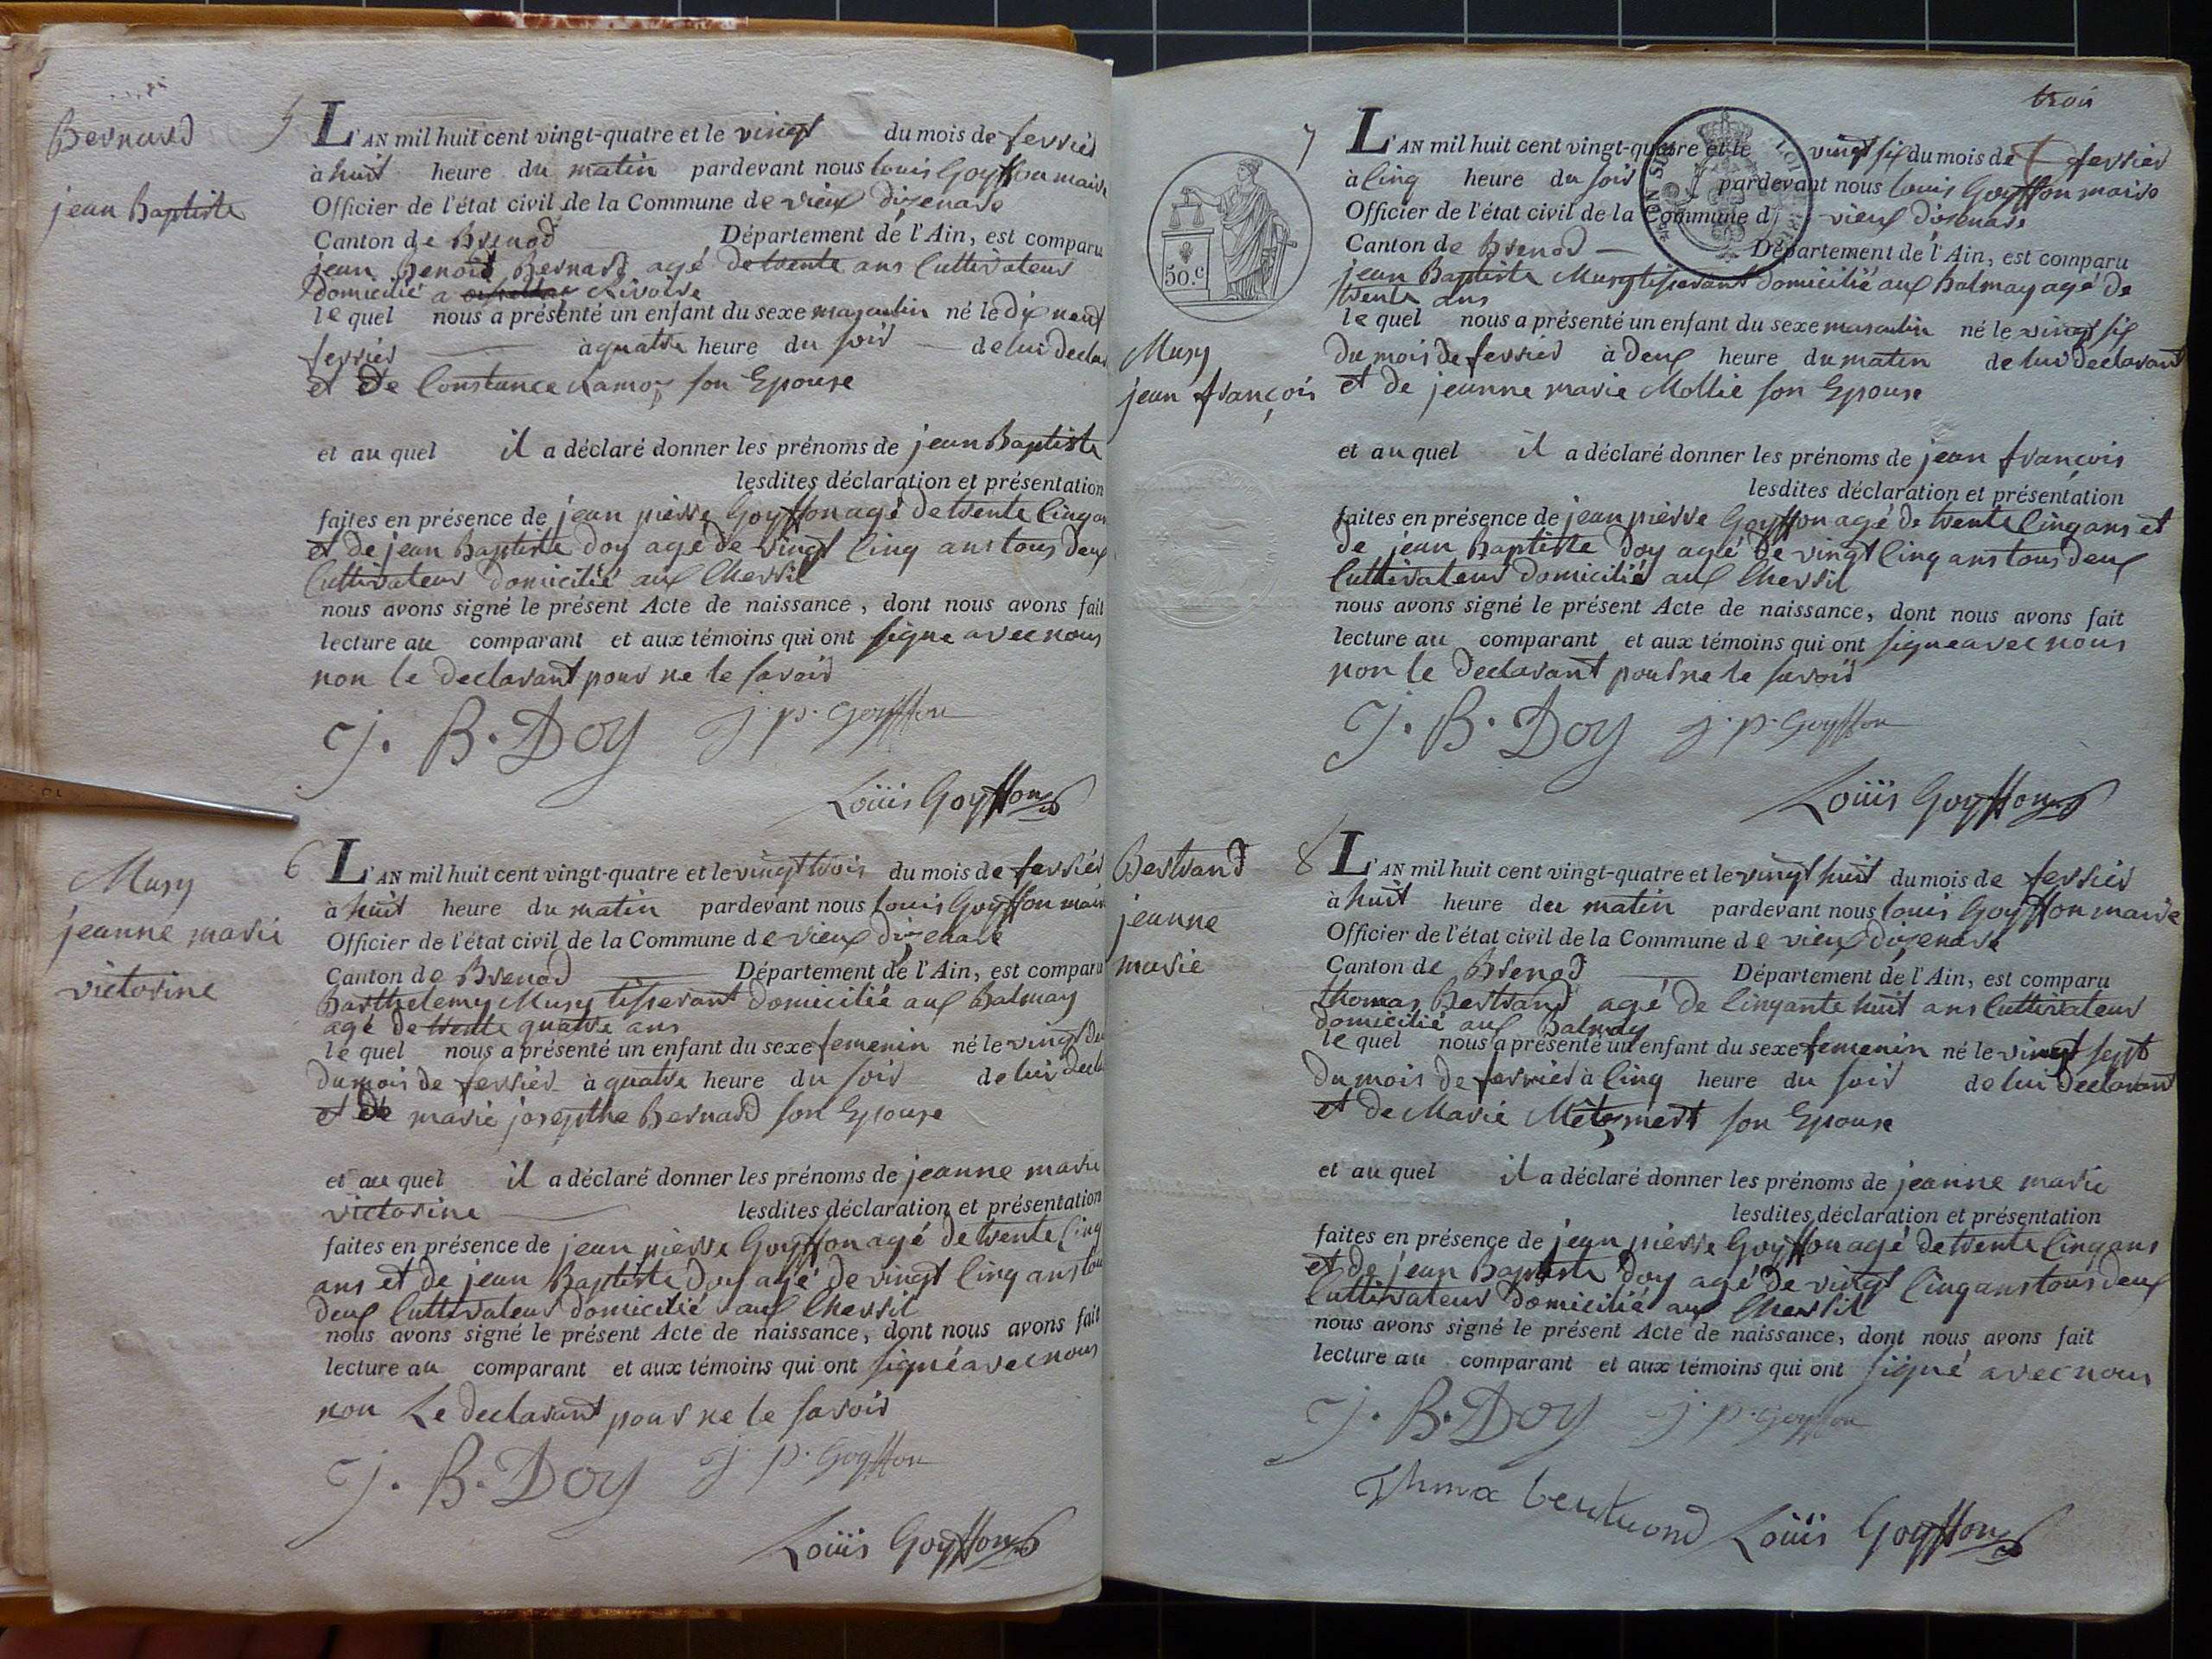 Bernard
jean Baptiste
5
L'AN mil huit cent vingt-quatre et le vingt du mois de fevrier
à huit heure du matin pardevant nous louis Goyffon maire
Officier de l'état civil de la Commune de vieux dizenave
Canton de Brenod Département de l'Ain, est comparu
jean Benoit Bernard agé de trente ans Cultivateur
domicilié a Rivoire
le quel nous a présenté un enfant du sexe masculin né le dix neuf
fevrier à quatre heure du soir de lui declar
et de Constance ramoz son Epouse
et au quel il a déclaré donner les prénoms de jean Baptiste
lesdites déclaration et présentation
faites en présence de jean pierre Goyffon agé de trente Cinq an
et de jean Baptiste doy agé de vingt Cinq ans tous deux
Cultivateur domicilié aux Chevril
nous avons signé le présent Acte de naissance, dont nous avons fait
lecture au comparant et aux témoins qui ont signe avec nous
non le declarant pour ne le savoir
J. B. Doy j. p. Goyffon
Loüis Goyffon
Musy
jeanne marie
victorine
6
L'AN mil huit cent vingt-quatre et le vingt trois du mois de fevrier
à huit heure du matin pardevant nous louis Goyffon maire
Officier de l'état civil de la Commune de vieux dizenave
Canton de Brenod Département de l'Ain, est comparu
Barthelemy Musy tisserant domicilié aux Balmay
agé de trente quatre ans
le quel nous a présenté un enfant du sexe femenin né le vingt deu
du mois de fevrier à quatre heure du soir de lui decla
et de marie josepthe Bernard son Epouse
et au quel il a déclaré donner les prénoms de jeanne marie
victorine lesdites déclaration et présentation
faites en présence de jean pierre Goyffon agé de trente Cinq
ans et de jean Baptiste doy agé de vingt Cinq ans tou
deux Cultivateur domicilié aux Chevril
nous avons signé le présent Acte de naissance, dont nous avons fait
lecture au comparant et aux témoins qui ont signé avec nous
non Le declarant pour ne le savoir
J. B. Doy j. p. Goyffon
Loüis Goyffon
trois
50.c
Musy
jean françois
7
L'AN mil huit cent vingt-quatre et le vingt six du mois de fevrier
à Cinq heure du soir pardevant nous louis Goyffon maire
Officier de l'état civil de la Commune d vieux dizenave
Canton de Brenod Département de l'Ain, est comparu
jean Baptiste Musy tisserant domicilié aux Balmay agé de
trente ans
le quel nous a présenté un enfant du sexe masculin né le vingt six
du mois de fevrier à deux heure du matin de lui declarant
et de jeanne marie Mollie son Epouse
et au quel il a déclaré donner les prénoms de jean françois
lesdites déclaration et présentation
faites en présence de jean pierre Goyffon agé de trente Cinq ans et
de jean Baptiste doy agé de vingt Cinq ans tous deux
Cultivateur domicilié aux Chevril
nous avons signé le présent Acte de naissance, dont nous avons fait
lecture au comparant et aux témoins qui ont signe avec nous
non le declarant pour ne le savoir
J. B. Doy j. p. Goyffon
Loüis Goyffon
Bertrand
jeanne
marie
8
L'AN mil huit cent vingt-quatre et le vingt huit du mois de fevrier
à huit heure du matin pardevant nous louis Goyffon maire
Officier de l'état civil de la Commune de vieux dizenave
Canton de Brenod Département de l'Ain, est comparu
thomas Bertrand agé de Cinqante huit ans Cultivateur
domicilié aux Balmay
le quel nous a présenté un enfant du sexe femenin né le vingt sept
du mois de fevrier à Cinq heure du soir de lui declarant
et de Marie son Epouse
et au quel il a déclaré donner les prénoms de jeanne marie
lesdites déclaration et présentation
faites en présence de jean pierre Goyffon agé de trente Cinq ans
et de jean Baptiste doy agé de vingt Cinq ans tous deux
Cultivateur domicilié aux Chevril
nous avons signé le présent Acte de naissance, dont nous avons fait
lecture au comparant et aux témoins qui ont signé avec nous
J. B. Doy j. p. Goyffon
Loüis Goyffon